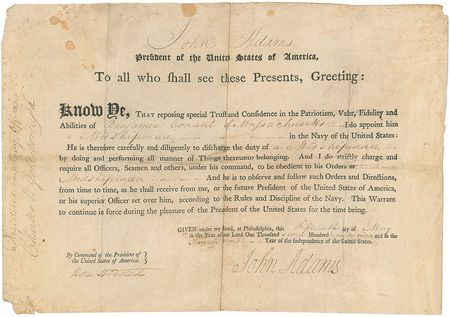 John Adams
President of the United States of America,
To all who shall see these Presents, Greeting:
Know Ye, THAT reposing special Trust and Confidence in the Patriotism, Valor, Fidelity and
Abilities of Benjamin of Massachusetts I do appoint him
a Midshipman in the Navy of the United States:
He is therefore carefully and diligently to discharge the duty of a Midshipman
by doing and performing all manner of Things thereunto belonging. And I do strictly charge and
require all Officers, Seamen and others, under his command, to be obedient to his Orders as
Midshipman And he is to observe and follow such Orders and Directions,
from time to time, as he shall receive from me, or the future President of the United States of America,
or his superior Officer set over him, according to the Rules and Discipline of the Navy. This Warrant
to continue in force during the pleasure of the President of the United States for the time being.
GIVEN under my hand, at Philadelphia, this day of May
in the Year of our Lord One Thousand Seven Hundred and in the
Twenty third Year of the Independence of the United States.
By Command of the President of
the United States of America.
John Adams
Ben Stoddert